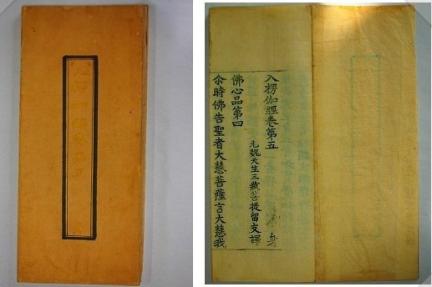 入楞伽經卷第五
元魏天竺三藏菩提留支譯
佛心品第四
尒時佛告聖者大慧菩薩言大慧我